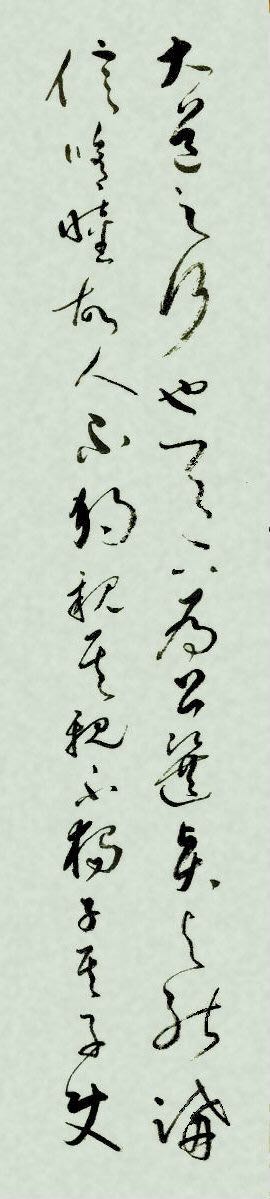 大道之行也天下為公選賢與能講
信修睦故人不獨親其親不獨子其子使